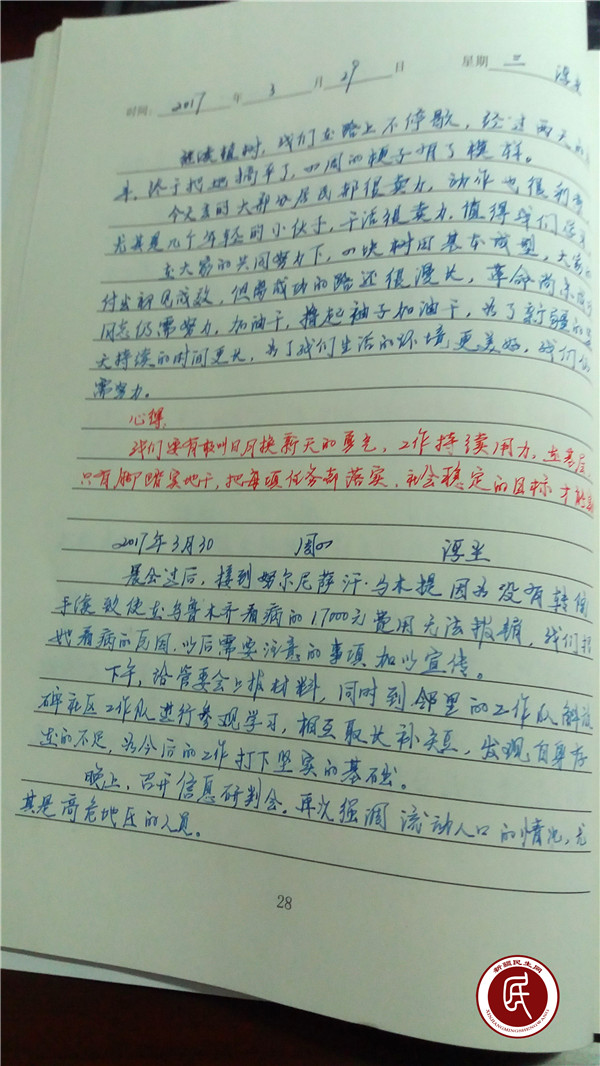 时间: 2017 年 3 月 29 日 星期 三 浮尘
植树, 我们在路上不停歇, 经过两天的
终于把地搞平了, 四周的梗子有了模样。
今天来的大部分居民都很卖力, 动作也很利
尤其是几个年轻的小伙子, 干活很卖力, 值得我们学习
在大家的共同努力下, 四块树田基本成型, 大家的
付出初见成效, 但离成功的路还很漫长, 革命尚未成
同志仍需努力, 加油干, 撸起袖子加油干, 为了新疆的
天持续的时间更长, 为了我们生活的环境更美好, 我们仍
需努力。
心得:
我们要有敢叫日月换新天的勇气, 工作持续用力, 在基层
只有脚踏实地干, 把每项任务都落实, 社会稳定的目标才能
2017年3月30 周四 浮尘
晨会过后, 接到努尔尼萨汗·马木提因为没有转
手续致使在乌鲁木齐看病的17000元费用无法报销, 我们把
她看病的原因, 以后需要注意的事项加以宣传。
下午, 给管委会上报材料, 同时到邻里的工作队解放
碑社区工作队进行参观学习, 相互取长补短, 发现自身存
在的不足, 为今后的工作打下坚实的基础。
晚上, 召开信息研判会。再次强调流动人口的情况, 尤
其是高危地区的人员。
28
新疆民生网
XINJIANGMINSHENGWANG